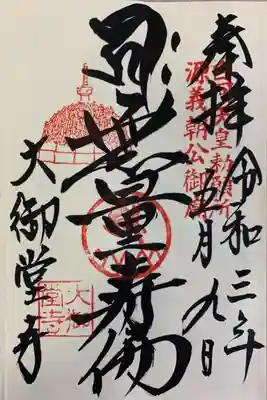 奉拝 令和三年五月九日
白河天皇勅願所
源義朝公御廟
無量寿仏
大御堂寺
大御
堂寺